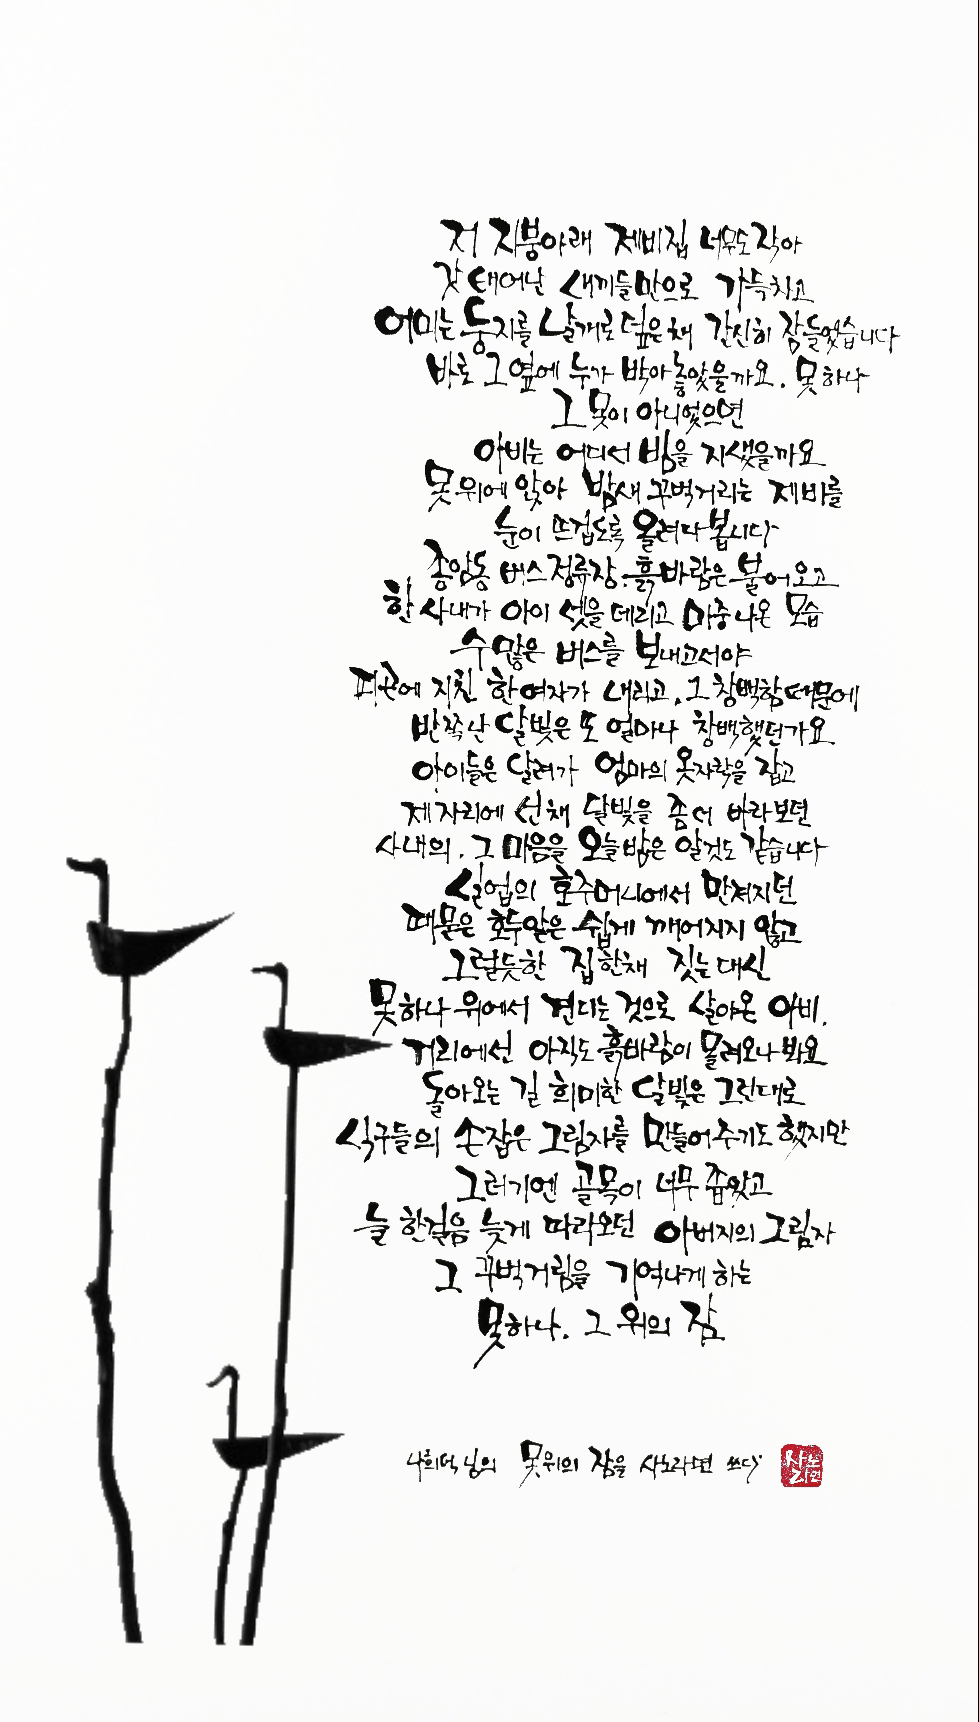 저 지붕아래 제비집 너무도 작아
갓 태어난 새끼들만으로 가득차고
어미는 둥지를 날개로 덮은 채 간신히 잠들었습니다
바로 그 옆에 누가 박아놓았을까요. 못 하나
그 못이 아니었으면
아비는 어디서 밤을 지샜을까요
못 위에 앉아 밤새 꾸벅거리는 제비를
눈이 뜨겁도록 올려다봅니다
종암동 버스정류장. 흙바람은 불어오고
한 사내가 아이 셋을 데리고 마중나온 모습
수많은 버스를 보내고서야
피곤에 지친 한 여자가 내리고. 그 창백함 때문에
반쪽난 달빛은 또 얼마나 창백했던가요
아이들은 달려가 엄마의 옷자락을 잡고
제자리에 선 채 달빛을 좀 더 바라보던
사내의. 그 마음을 오늘밤은 알것도 같습니다
실업의 호주머니에서 만져지던
때묻은 호두알은 쉽게 깨어지지 않고
그럴듯한 집 한채 짓는 대신
못하나 위에서 견디는 것으로 살아온 아비.
거리에선 아직도 흙바람이 몰려오나봐요
돌아오는 길 희미한 달빛은 그런대로
식구들의 손잡은 그림자를 만들어주기도 했지만
그러기엔 골목이 너무 좁았고
늘 한걸음 늦게 따라오던 아버지의 그림자
그 꾸벅거림을 기억나게 하는
못하나. 그 위의 잠
나희덕님의 못위의 잠을 사노라면 쓰다
사노라면